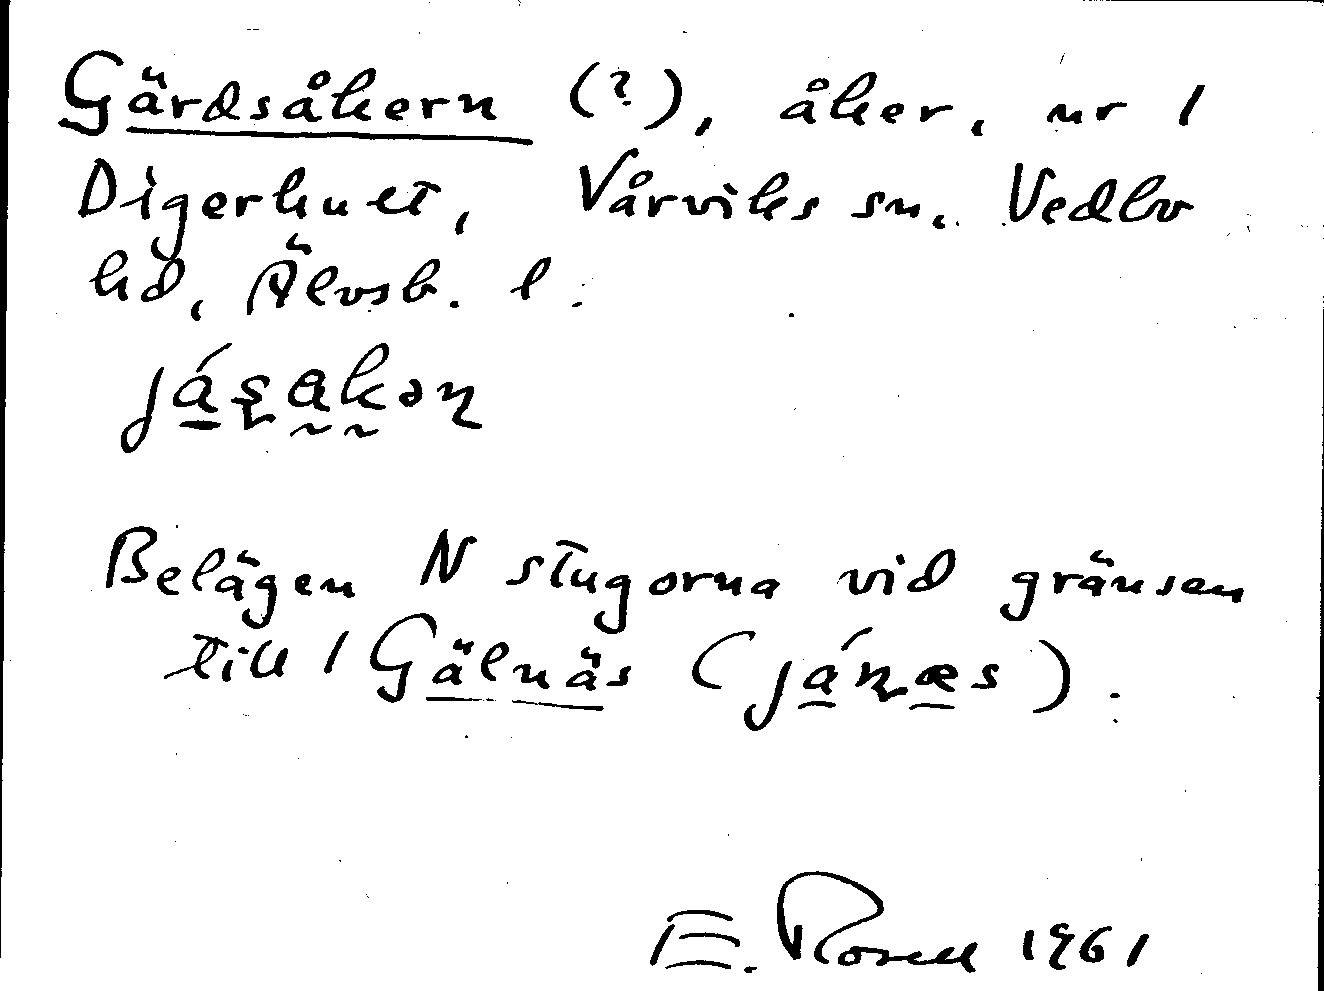 Gärdsåkern (?), åker, nr 1
Digerhult, Vårviks sn, Vedbo
hd, Älvsb. l.
já̱ʂḁkəɳ
Belägen N stugorna vid gränsen
till 1 Gälnäs (já̱ɳæ̱s).
E. Rosell 1961